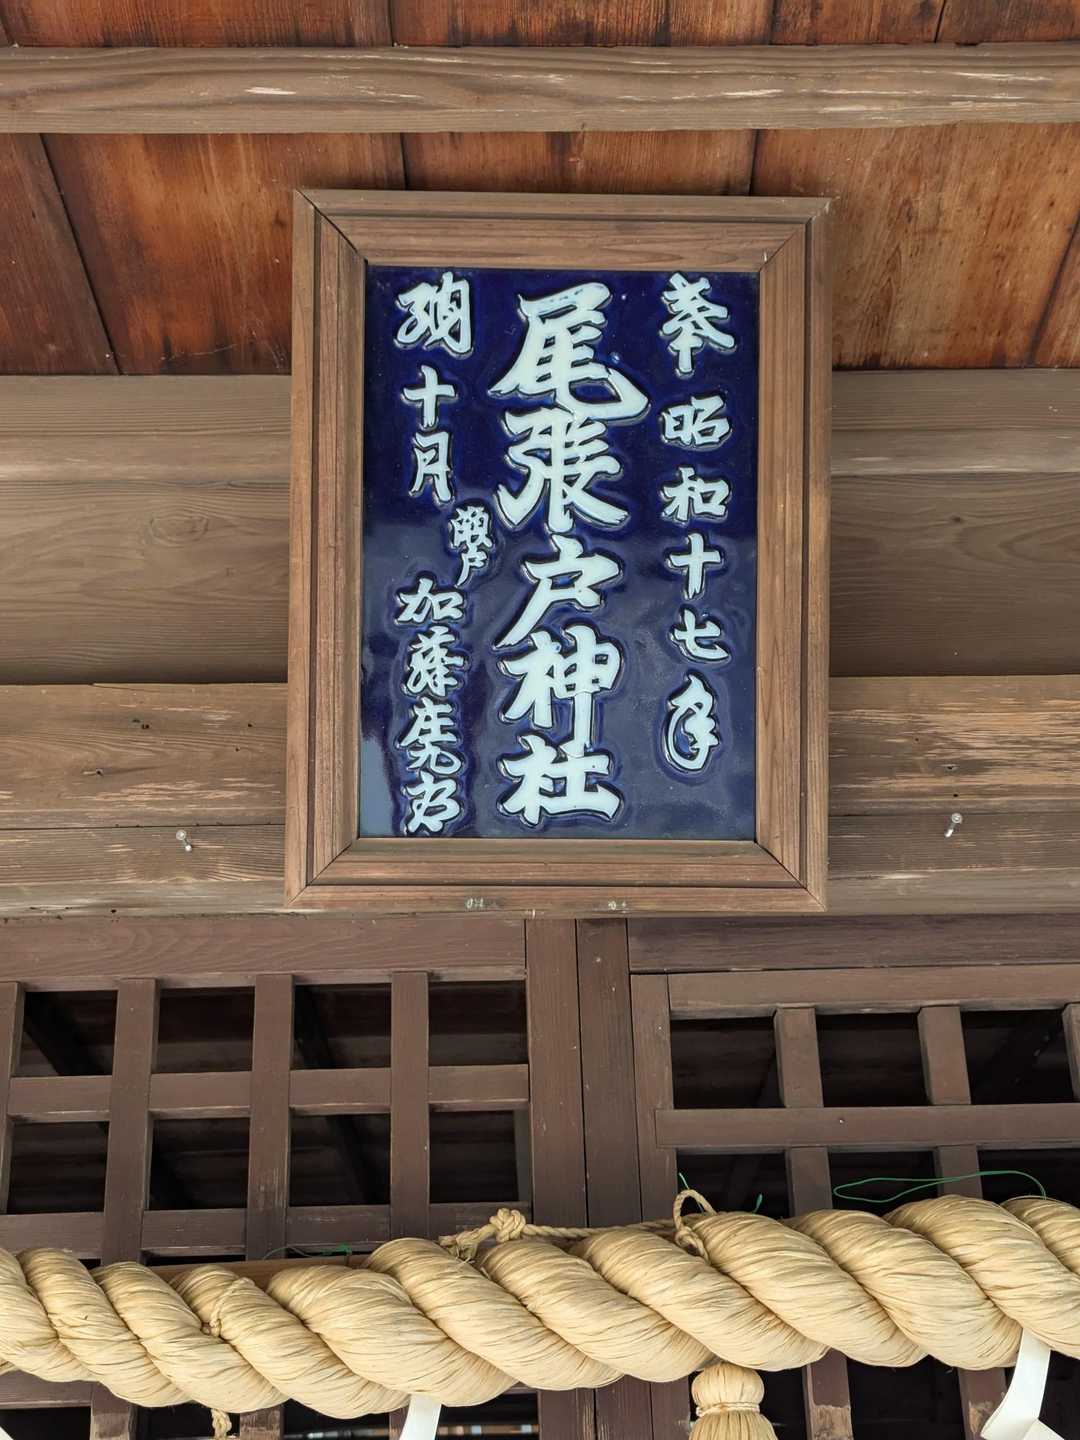 奉 昭和十七年
尾張戸神社
納 十月
瀬戸 加藤